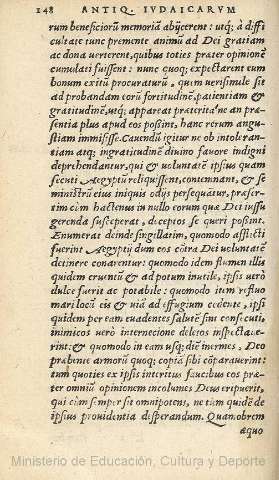 148 ANTIQ. IVDAICARVM
rum beneficiorũ memoriã abÿcerent: utq; à diffi
cultate tunc premente animũ ad Dei gratiam
ac dona verterent, quibus toties præter opinionẽ
cumulati fuissent: nunc quoq; expectarent eum
bonum exitũ procuraturũ, quem uerisimile sit
ad probandam eorũ fortitudinẽ, patientiam &
gratitudinẽ, utq; appareat præterita ne an præ-
sentia plus apud eos possint, hanc rerum angu-
stiam immisisse. Cauendũ igitur ne ob intoleran-
tiam atq; ingratitudinẽ diuino fauore indigni
deprehendantur, qui & voluntatẽ ipsius quam
secuti Aegyptũ reliquissent, contemnant, & se
ministrũ eius iniquis odijs persequatur, præser-
tim cùm hactenus in nullo eorum quæ Dei iussu
gerenda susceperat, deceptos se queri possint.
Enumerat deinde singillatim, quomodo afflicti
fuerint Aegyptij dum eos cõtra Dei voluntatẽ
detinere conarentur: quomodo idem flumen illis
quidem cruentũ & ad potum inutile, ipsis verò
dulce fuerit ac potabile: quomodo item per refluũ
mare locũ eis & uiã ad effugium cedente, ipsi
quidem per eam euadentes salutẽ sint consecuti,
inimicos verò internecione deletos inspectaue-
rint: & quomodo in eam usq; diẽ inermes, Deo
præbente armorũ quoq; copiã sibi cõparauerint:
tum quoties ex ipsis interitus faucibus eos præ-
ter omniũ opinionem incolumes Deus eripuerit,
qui cùm semper sit omnipotens, ne tum quidẽ de
ipsius prouidentia desperandum. Quamobrem
æquo
Ministerio de Educación, Cultura y Deporte